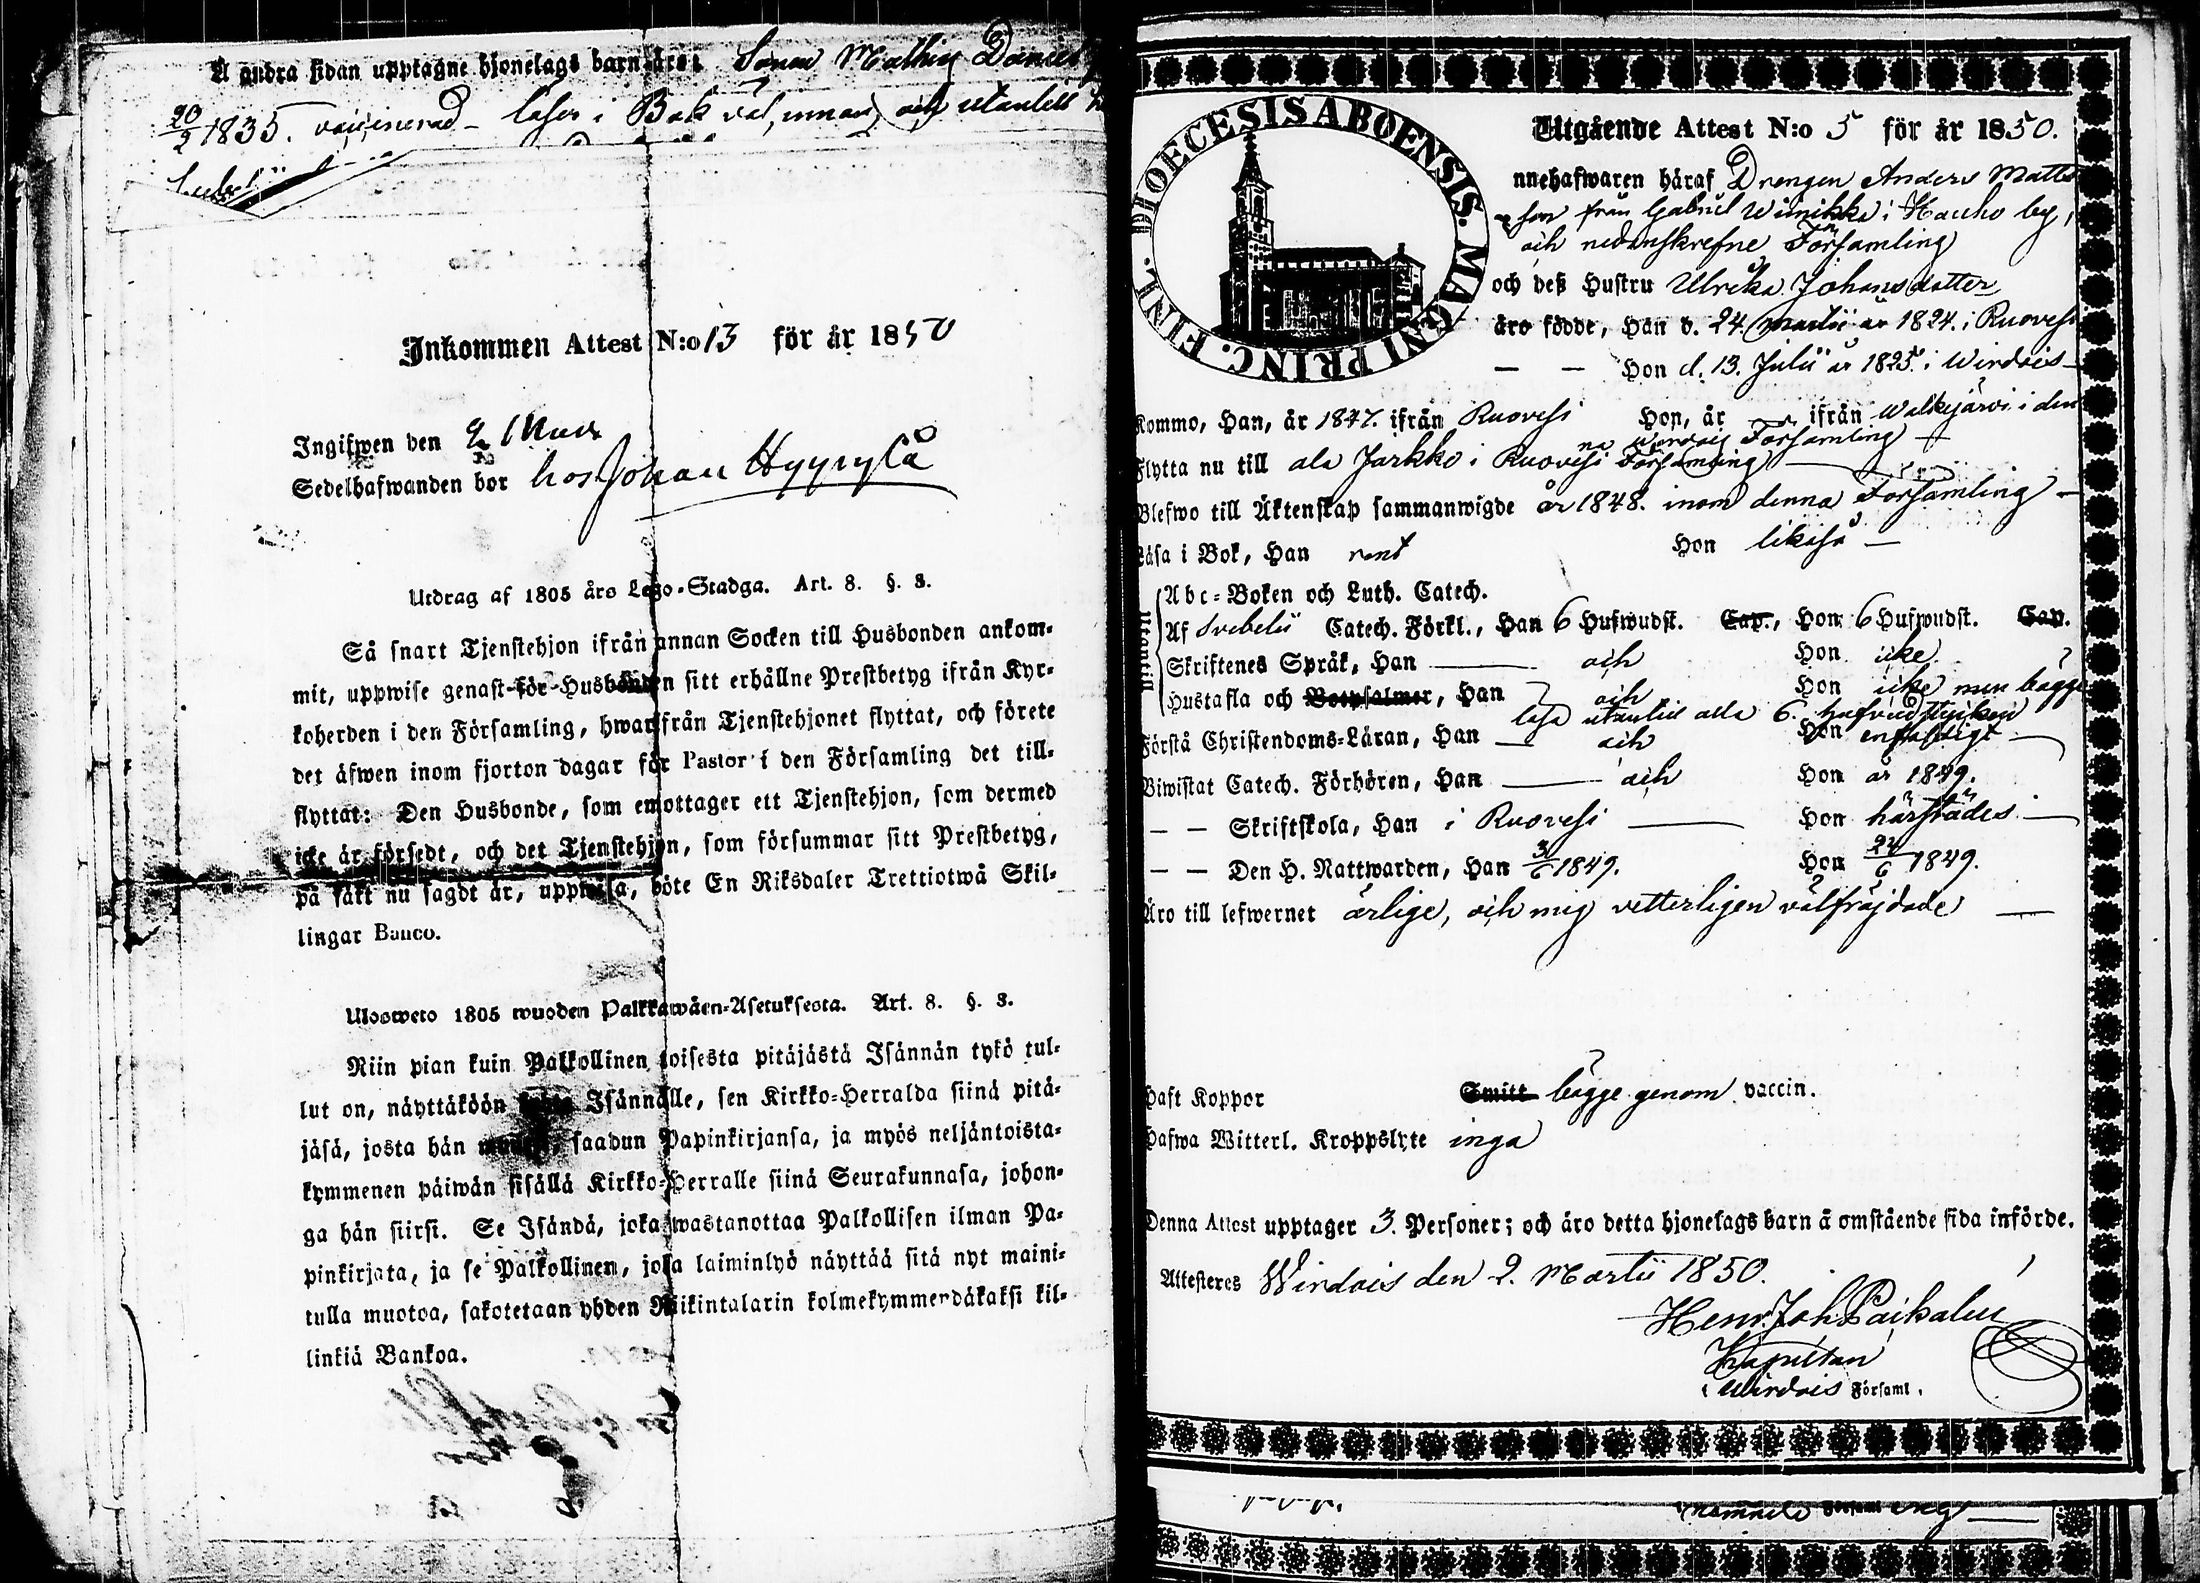 Å andra sidan upptagne hjonelags barn äro: Sonen Mathias Daniel
20/2 1835. vaccinerad – läser i Bok väl, innan och utantill
Inkommen Attest N:o 13 för år 1850
Ingifwen den
Sedelhafwanden bor hos Johan Hyyrylä
Utdrag af 1805 års Lego-Stadga. Art. 8. §. 3.
Så snart Tjenstehjon ifrån annan Socken till Husbonden ankom-
mit, uppwise genast för Husbonden sitt erhållne Prestbetyg ifrån Kyr-
koherden i den Församling, hwarifrån Tjenstehjonet flyttat, och förete
det äfwen inom fjorton dagar för Pastor i den Församling det till-
flyttat: Den Husbonde, som emottager ett Tjenstehjon, som dermed
icke är försedt, och det Tjenstehjon, som försummar sitt Prestbetyg,
på sätt nu sagdt är, uppwisa, böte En Riksdaler Trettiotwå Skil-
lingar Banco.
Ulosweto 1805 wuoden Palkkawäen-Asetuksesta. Art. 8. §. 3.
Niin pian kuin Palkollinen toisesta pitäjästä Isännän tykö tul-
lut on, näyttäköön Isännälle, sen Kirkko-Herralda siinä pitä-
jäsä, josta hän saadun Papinkirjansa, ja myös neljäntoista-
kymmenen päiwän sisällä Kirkko-Herralle siinä Seurakunnasa, johon-
ga hän siirsi. Se Isändä, joka wastanottaa Palkollisen ilman Pa-
pinkirjata, ja se Palkollinen, joka laiminlyö näyttää sitä nyt maini-
tulla muotoa, sakotetaan yhden Riikintalarin kolmekymmendäkaksi kil-
linkiä Bankoa.
DIOECESIS ABOENSIS. MAGNI PRINC. FINL.
Utgående Attest N:o 5 för år 1850.
nnehafwaren häraf Drengen Anders Matts
son från Gabriel Wimikka i Hauho by,
och nedanskrefne Församling
och deß Hustru Ulrika Johansdotter
äro födde, Han d. 24. Martii år 1824. i Ruovesi
— — Hon d. 13. Julii år 1825. i Wirdois –
Kommo, Han, år 1847. ifrån Ruovesi Hon, år — ifrån Walkejärvi i den
na Wirdois Församling –
Flytta nu till ala Jarkko i Ruovesi Församling –
Blefwo till Äktenskap sammanwigde år 1848. inom denna Församling –
Läsa i Bok, Han rent Hon likaså –
Utantill
Abc-Boken och Luth. Catech.
Af Svebelii Catech. Förkl., Han 6 Hufwudst. Cap., Hon 6 Hufwudst. Cap.
Skriftenes Språk, Han — och Hon icke
Hustafla och Botpsalmer, Han — och Hon icke men bägge
läsa utantill alla 6. hufvudstycken
Förstå Christendoms-Läran, Han — och Hon enfaldigt –
Biwistat Catech. Förhören, Han — och Hon år 1849.
— — Skriftskola, Han i Ruovesi — Hon härstädes –
— — Den H. Nattwarden, Han 3/6 1849. Hon 24/6 1849.
Äro till lefwernet ärlige, och mig vetterligen välfräjdade –
Haft Koppor Smitt bägge genom vaccin.
Hafwa Witterl. Kroppslyte inga
Denna Attest upptager 3. Personer; och äro detta hjonelags barn å omstående sida införde.
Attesteres Wirdois den 2. Martii 1850.
Henr. Joh. Paikalin
Kapellan
i Wirdois Församl.